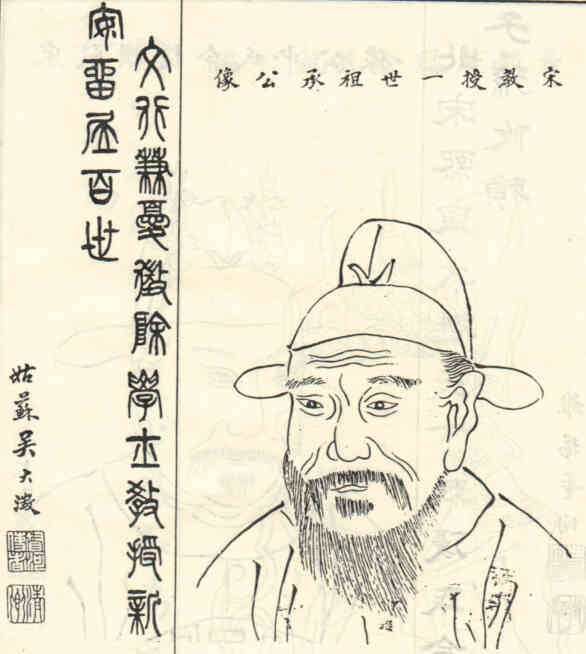 宋教授一世祖承公像
文行兼憂徵除學士教授新
安畱百世
姑蘇吳大澂